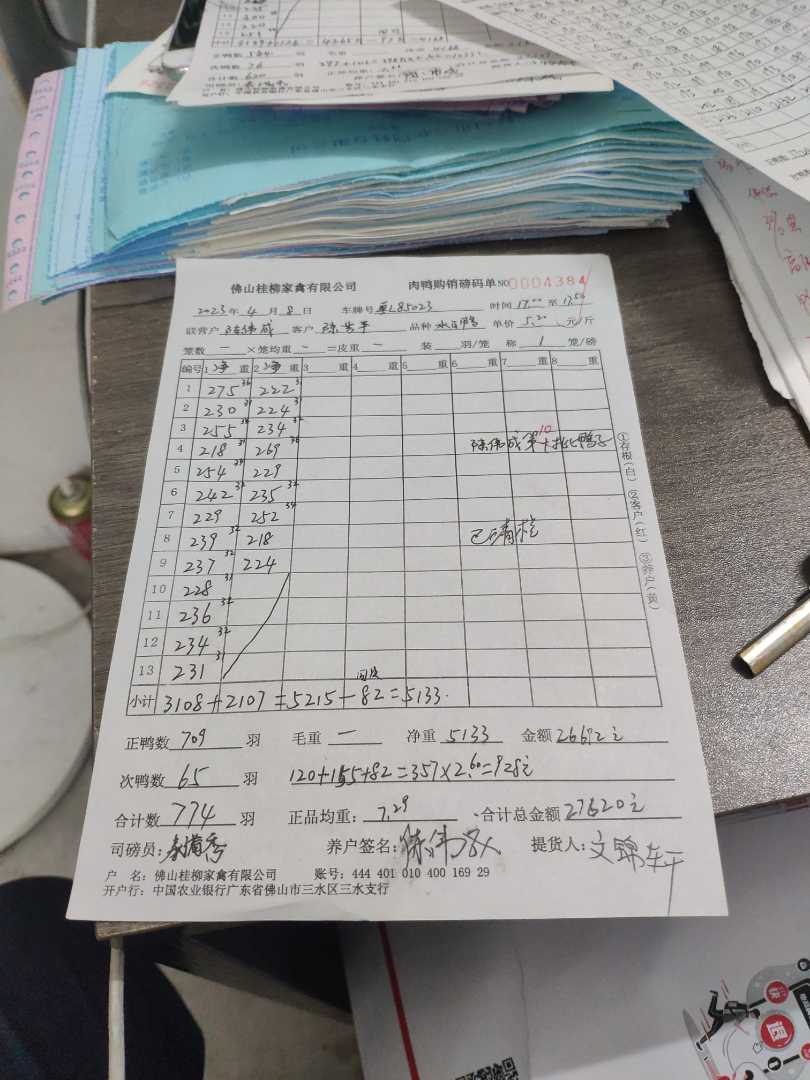 佛山桂柳家禽有限公司 肉鸭购销磅码单 NO 0004384
2023年 4 月 8 日 车牌号 粤L85023 时间 17.00 至 17.50
联营户 陈伟成 客户 品种 单价 5.20 元/斤
笼数 一 ×笼均重 一 =皮重 一 装 羽/笼 称 1 笼/磅
编号 1 净 重 2 净 重 3 重 4 重 5 重 6 重 7 重 8 重
1 275 36 222 31
2 230 31 224 31
3 255 34 234 32
4 218 31 269 36
5 254 229
6 242 32 235 32
7 229 252 34
8 239 32 218
9 237 32 224
10 228 31
11 236 32
12 234 32
13 231 31
陈伟成第10批鸭子
已清栏
小计 3108+2107=5215-82=5133
正鸭数 709 羽 毛重 一 净重 5133 金额 26692元
次鸭数 65 羽 120+155+82=357×2.60=928元
合计数 774 羽 正品均重: 7.29 合计总金额 27620元
司磅员: 养户签名: 提货人: 文锦
户 名: 佛山桂柳家禽有限公司 账号: 444 401 010 400 169 29
开户行: 中国农业银行广东省佛山市三水区三水支行
①存根(白) ②客户(红) ③养户(黄)